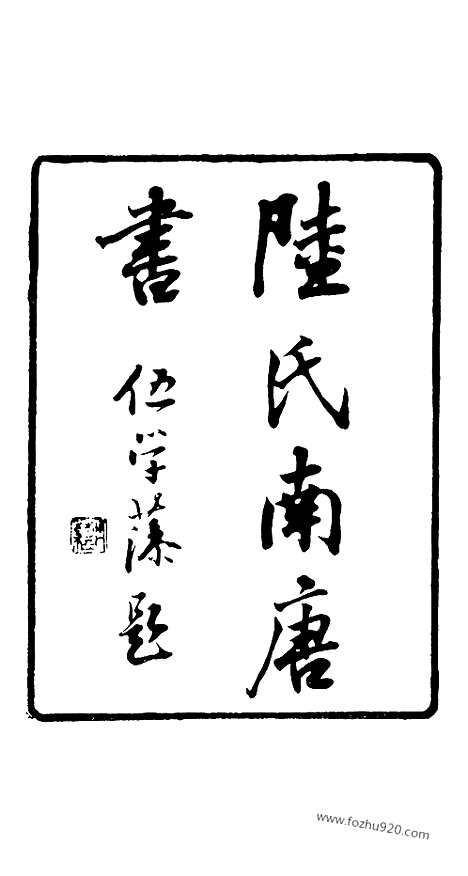 陸氏南唐
書
伍学藻題
www.fozhu920.com